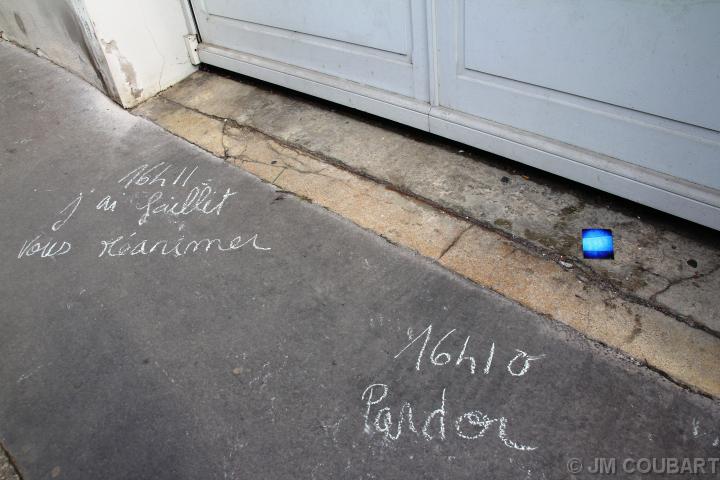 16h11
j'ai faillit
vous réanimer
16h10
Pardon
© JM COUBART